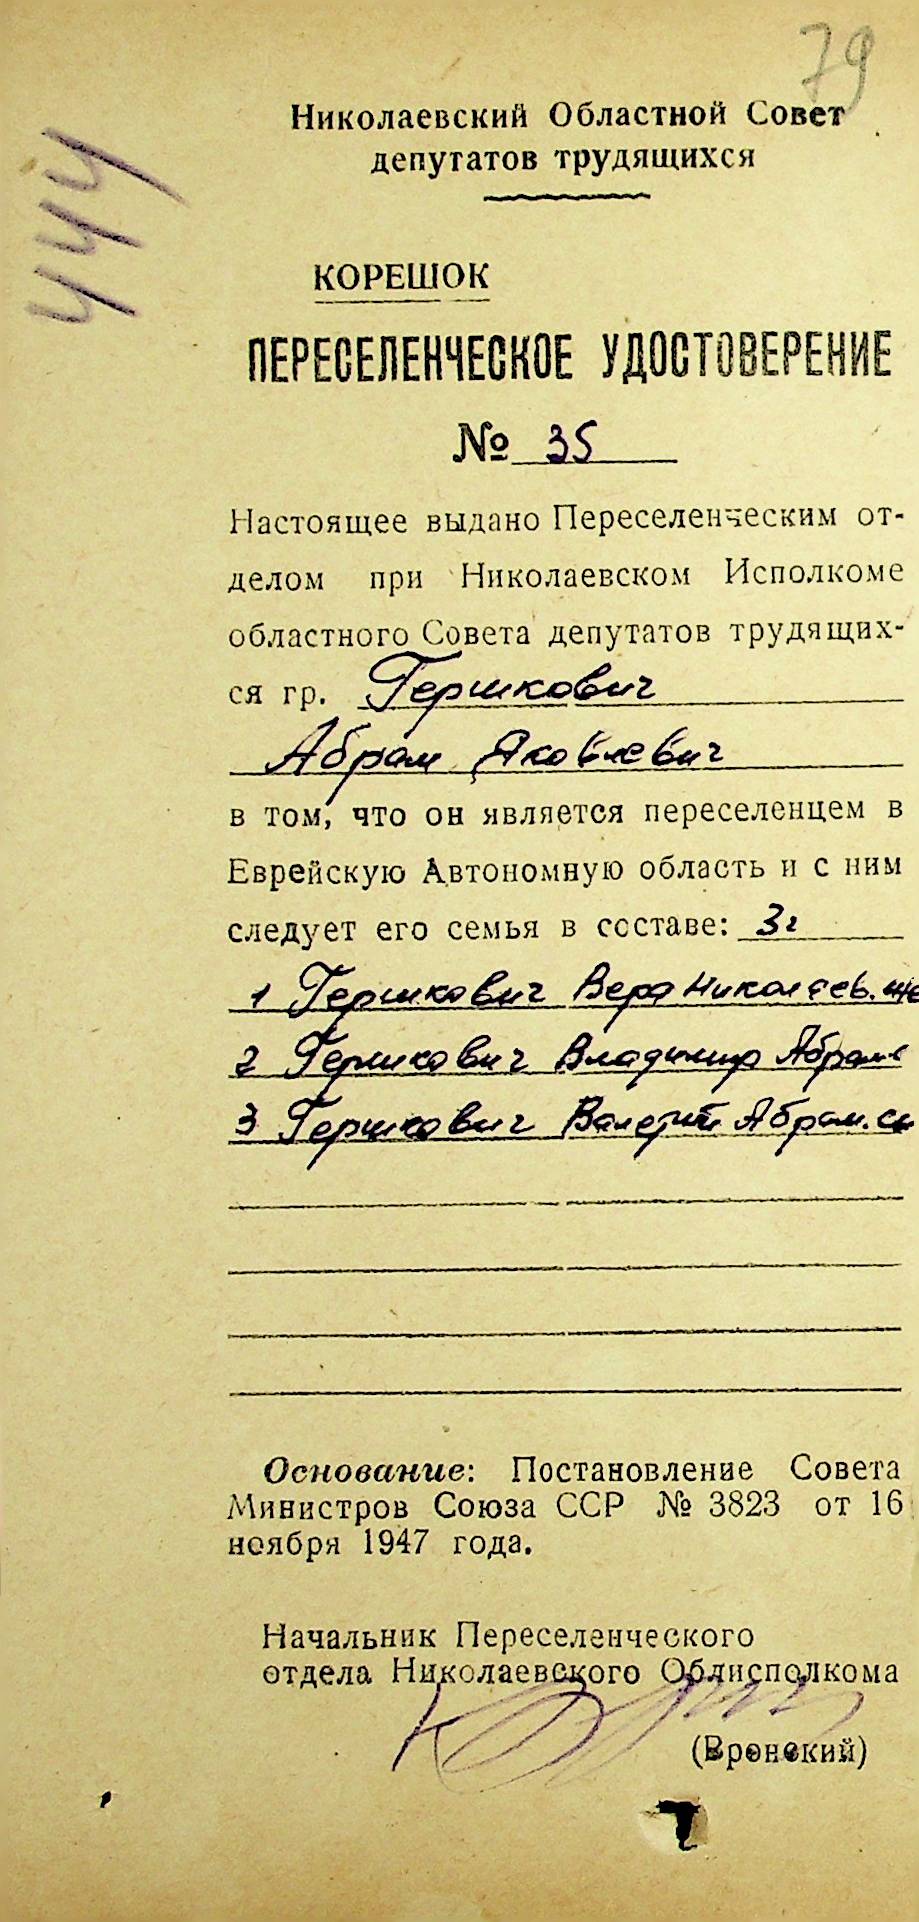 79
Николаевский Областной Совет
депутатов трудящихся
444
КОРЕШОК
ПЕРЕСЕЛЕНЧЕСКОЕ УДОСТОВЕРЕНИЕ
№ 35
Настоящее выдано Переселенческим от-
делом при Николаевском Исполкоме
областного Совета депутатов трудящих-
ся гр. Гершкович
Абрам Яковлевич
в том, что он является переселенцем в
Еврейскую Автономную область и с ним
следует его семья в составе: 3
1 Гершкович Вера Николаев. же
2 Гершкович Владимир Абрам
3 Гершкович Валерий Абрам. сы
Основание: Постановление Совета
Министров Союза ССР № 3823 от 16
ноября 1947 года.
Начальник Переселенческого
отдела Николаевского Облисполкома
(Вронский)